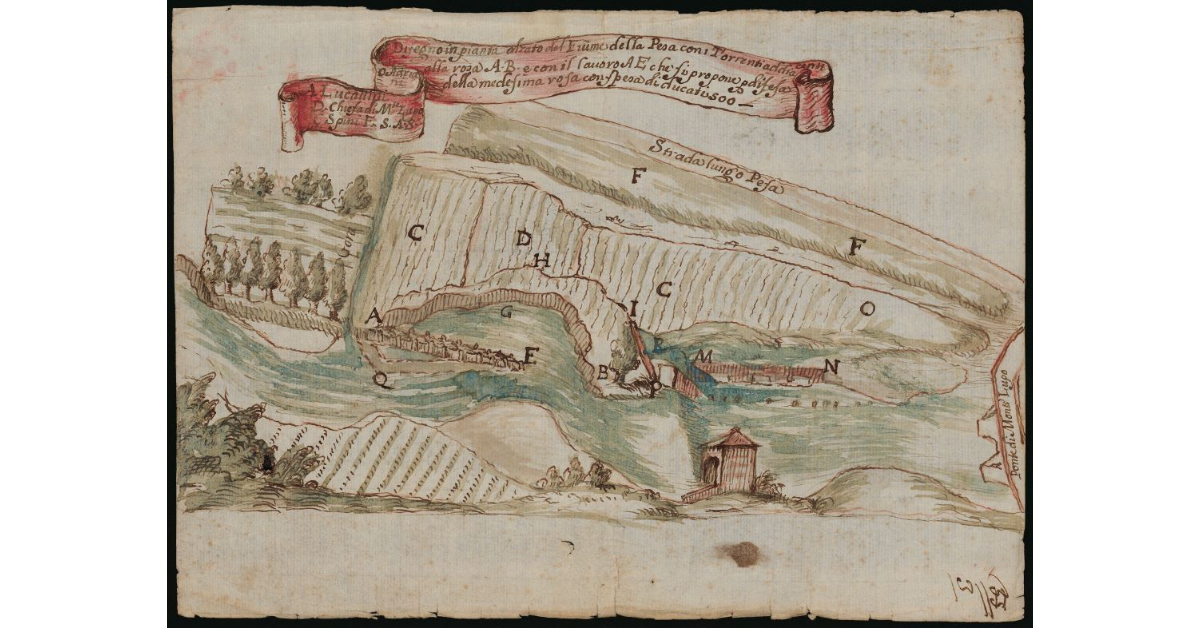 Disegno in pianta alzato del Fiume della Pesa con i Torrenti
alla rosa A.B. e con il lavoro A E che si propone p difesa
della medesima rosa con spesa di ducati 500
D. Chiesa di
Spini F. S. A. S.
Strada lungo Pesa
F
F
C
D
H
C
O
Gora
A
G
I
E
B
R
M
N
Q
P
S
Ponte di Monte Lupo
A
33